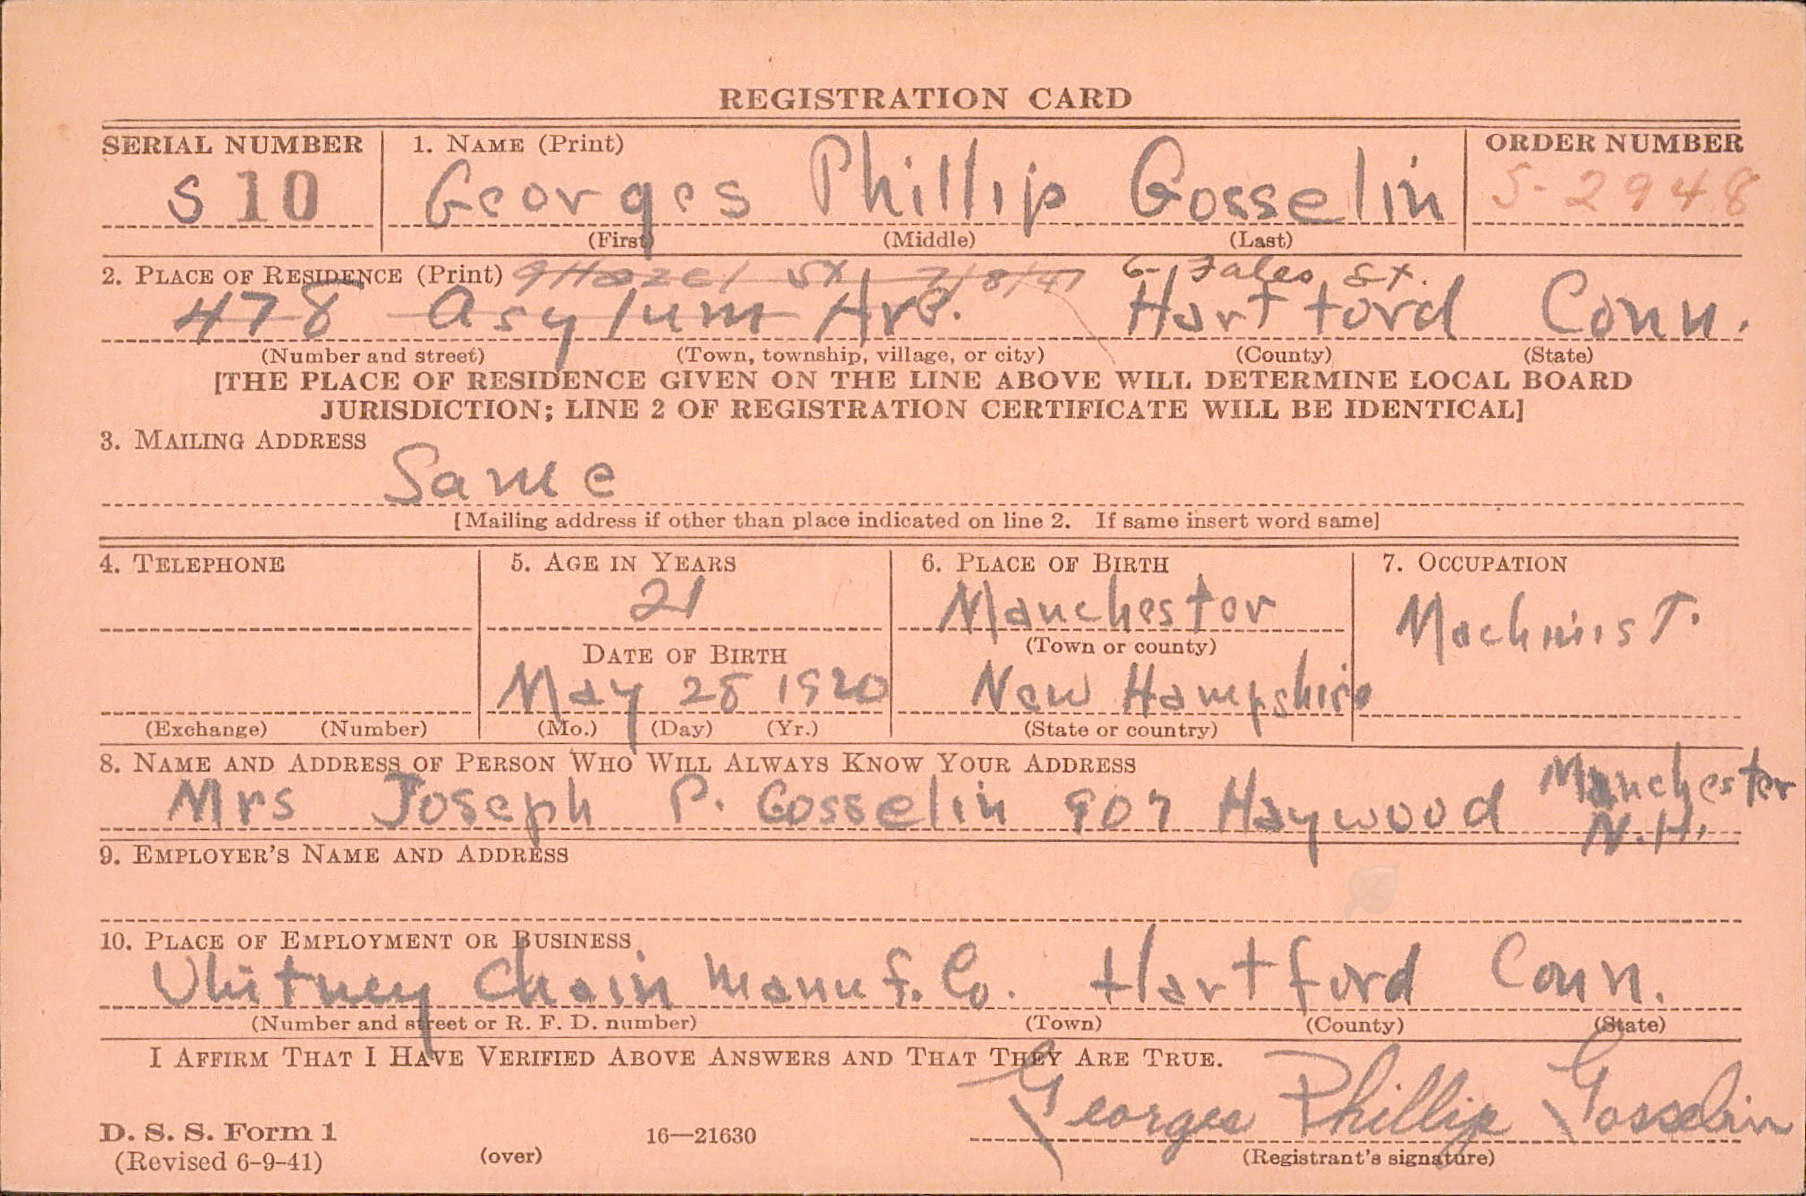 REGISTRATION CARD
SERIAL NUMBER 1. NAME (Print) ORDER NUMBER
S 10 Georges Phillip Gosselin S-2948
(First) (Middle) (Last)
2. PLACE OF RESIDENCE (Print) 9 Hazel St 7/8/41 6- Fales St.
478 Asylum Ave. Hartford Conn.
(Number and street) (Town, township, village, or city) (County) (State)
[THE PLACE OF RESIDENCE GIVEN ON THE LINE ABOVE WILL DETERMINE LOCAL BOARD
JURISDICTION; LINE 2 OF REGISTRATION CERTIFICATE WILL BE IDENTICAL]
3. MAILING ADDRESS
Same
[Mailing address if other than place indicated on line 2. If same insert word same]
4. TELEPHONE 5. AGE IN YEARS 6. PLACE OF BIRTH 7. OCCUPATION
21 Manchester Machinist.
DATE OF BIRTH (Town or county)
May 28 1920 New Hampshire
(Exchange) (Number) (Mo.) (Day) (Yr.) (State or country)
8. NAME AND ADDRESS OF PERSON WHO WILL ALWAYS KNOW YOUR ADDRESS
Mrs Joseph P. Gosselin 907 Haywood Manchester
N.H.
9. EMPLOYER'S NAME AND ADDRESS
10. PLACE OF EMPLOYMENT OR BUSINESS
Whitney Chain Manuf. Co. Hartford Conn.
(Number and street or R. F. D. number) (Town) (County) (State)
I AFFIRM THAT I HAVE VERIFIED ABOVE ANSWERS AND THAT THEY ARE TRUE.
Georges Phillip Gosselin
D. S. S. Form 1 16—21630
(Revised 6-9-41) (over) (Registrant's signature)